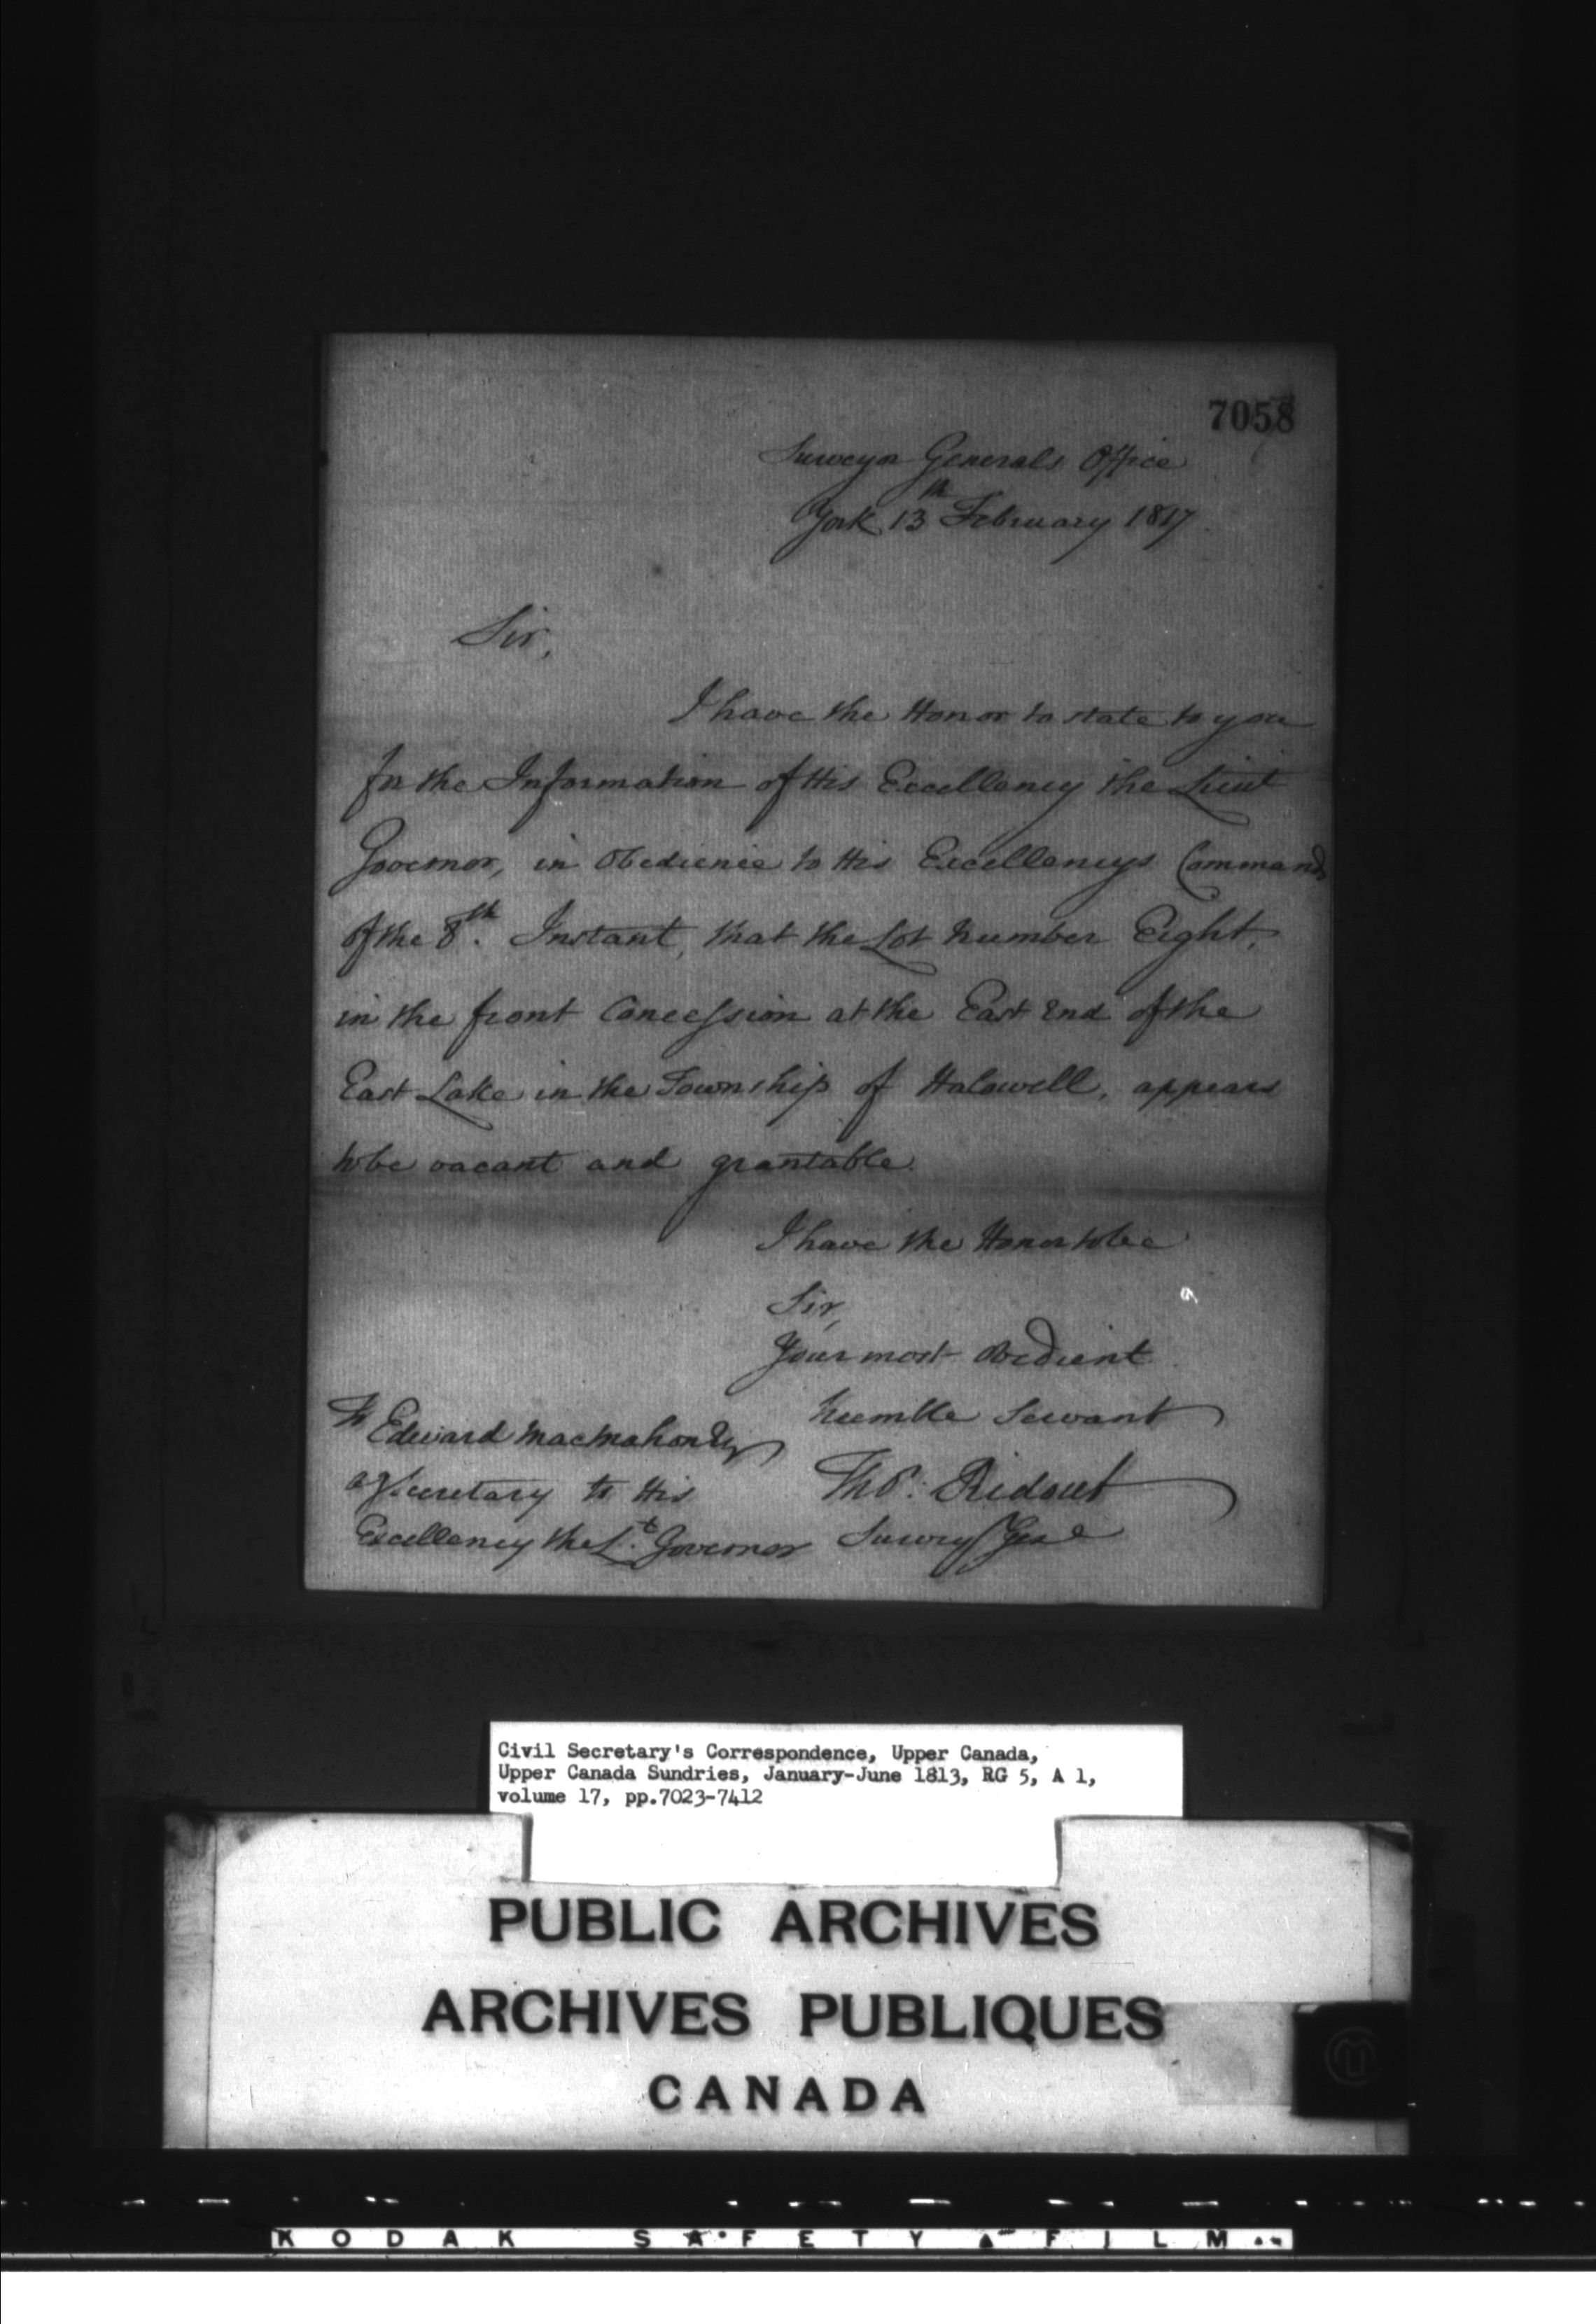 7058
Surveyor Generals Office
York 13th February 1817.
Sir,
I have the Honor to state to you
for the Information of His Excellency the Lieut
Governor, in Obedience to His Excellencys Commands
of the 8th. Instant, that the Lot Number Eight,
in the front Concession at the East End of the
East Lake in the Township of Halowell, appears
to be vacant and grantable.
I have the Honor to be
Sir,
Your most Obedient
humble Servant
Thos. Ridout
Survey Genl
To Edward MacMahon Esq
Secretary to His
Excellency the Lt. Governor
Civil Secretary's Correspondence, Upper Canada,
Upper Canada Sundries, January-June 1813, RG 5, A 1,
volume 17, pp.7023-7412
PUBLIC ARCHIVES
ARCHIVES PUBLIQUES
CANADA
KODAK SAFETY FILM